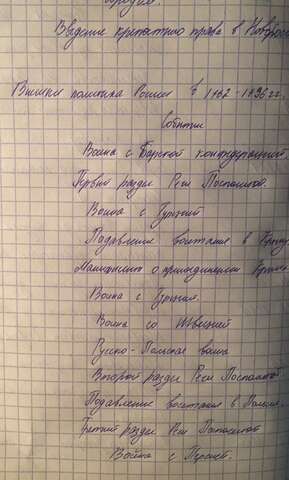 Введение крепостного права в
Внешняя политика России в 1762-1796 гг.
События
Война с Барской конфедерацией
Первый раздел Речи Посполитой.
Война с Турцией
Подавление восстания в
Манифест о присоединении
Война с Турцией.
Война со Швецией
Русско-Польская война
Второй раздел Речи Посполитой
Подавление восстания в Польше.
Третий раздел Речи Посполитой
Война с Персией.